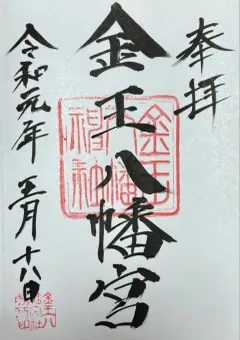 奉拝
金王八幡宮
令和元年五月十八日
金王
八幡
神社